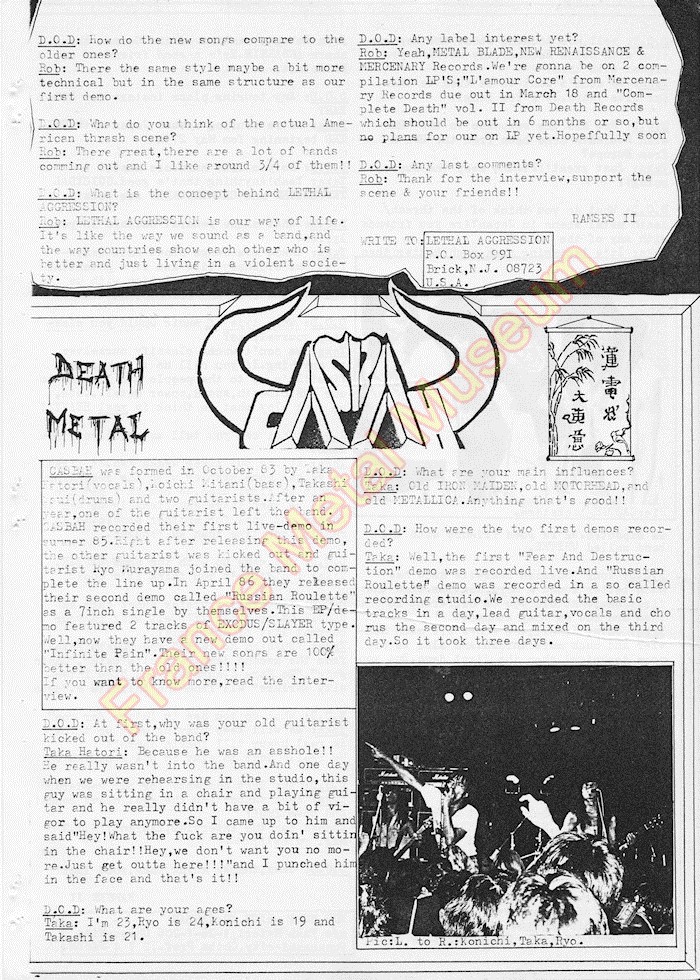 D.O.D: How do the new songs compare to the
older ones?
Rob: There the same style maybe a bit more
technical but in the same structure as our
first demo.
D.O.D: What do you think of the actual Ame-
rican thrash scene?
Rob: There great,there are a lot of bands
comming out and I like around 3/4 of them!!
D.O.D: What is the concept behind LETHAL
AGGRESSION?
Rob: LETHAL AGGRESSION is our way of life.
It's like the way we sound as a band,and
the way countries show each other who is
better and just living in a violent socie-
ty.
D.O.D: Any label interest yet?
Rob: Yeah,METAL BLADE,NEW RENAISSANCE &
MERCENARY Records.We're gonna be on 2 com-
pilation LP'S;"L'amour Core" from Mercena-
ry Records due out in March 18 and "Com-
plete Death" vol. II from Death Records
which should be out in 6 months or so,but
no plans for our on LP yet.Hopeffully soon
D.O.D: Any last comments?
Rob: Thank for the interview,support the
scene & your friends!!
RAMSES II
WRITE TO:LETHAL AGGRESSION
P.O. Box 991
Brick,N.J. 08723
U.S.A.
DEATH
METAL
CASBAH
CASBAH was formed in October 83 by Taka
Hatori(vocals),Koichi Mitani(bass),Takashi
(drums) and two guitarists.After an
year,one of the guitarist left the band.
CASBAH recorded their first live-demo in
summer 85.Right after releasing this demo,
the other guitarist was kicked out and gui-
tarist Ryo Murayama joined the band to com-
plete the line up.In April 86 they released
their second demo called "Russian Roulette"
as a 7inch single by themselves.This EP/de-
mo featured 2 tracks of EXODUS/SLAYER type.
Well,now they have a new demo out called
"Infinite Pain".Their new songs are 100%
better than the old ones!!!!
If you want to know more,read the inter-
view.
D.O.D: At first,why was your old guitarist
kicked out of the band?
Taka Hatori: Because he was an asshole!!
He really wasn't into the band.And one day
when we were rehearsing in the studio,this
guy was sitting in a chair and playing gui-
tar and he really didn't have a bit of vi-
gor to play anymore.So I came up to him and
said"Hey!What the fuck are you doin' sittin
in the chair!!Hey,we don't want you no mo-
re.Just get outta here!!!"and I punched him
in the face and that's it!!
D.O.D: What are your ages?
Taka: I'm 23,Ryo is 24,Konichi is 19 and
Takashi is 21.
D.O.D: What are your main influences?
Taka: Old IRON MAIDEN,old MOTORHEAD,and
old METALLICA.Anything that's good!!
D.O.D: How were the two first demos recor-
ded?
Taka: Well,the first "Fear And Destruc-
tion" demo was recorded live.And "Russian
Roulette" demo was recorded in a so called
recording studio.We recorded the basic
tracks in a day,lead guitar,vocals and cho
rus the second day and mixed on the third
day.So it took three days.
Pic:L. to R.:Konichi,Taka,Ryo.
France Metal Museum